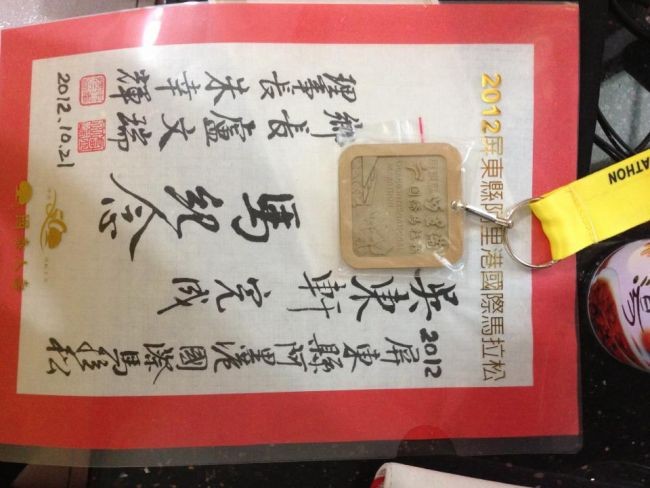 2012屏東縣阿里港國際馬拉松
2012屏東縣阿里港國際馬拉松
吳東軒 完成
馬紀念
鄉長 盧文瑞
理事長 朱幸輝
2012.10.21
ATHON